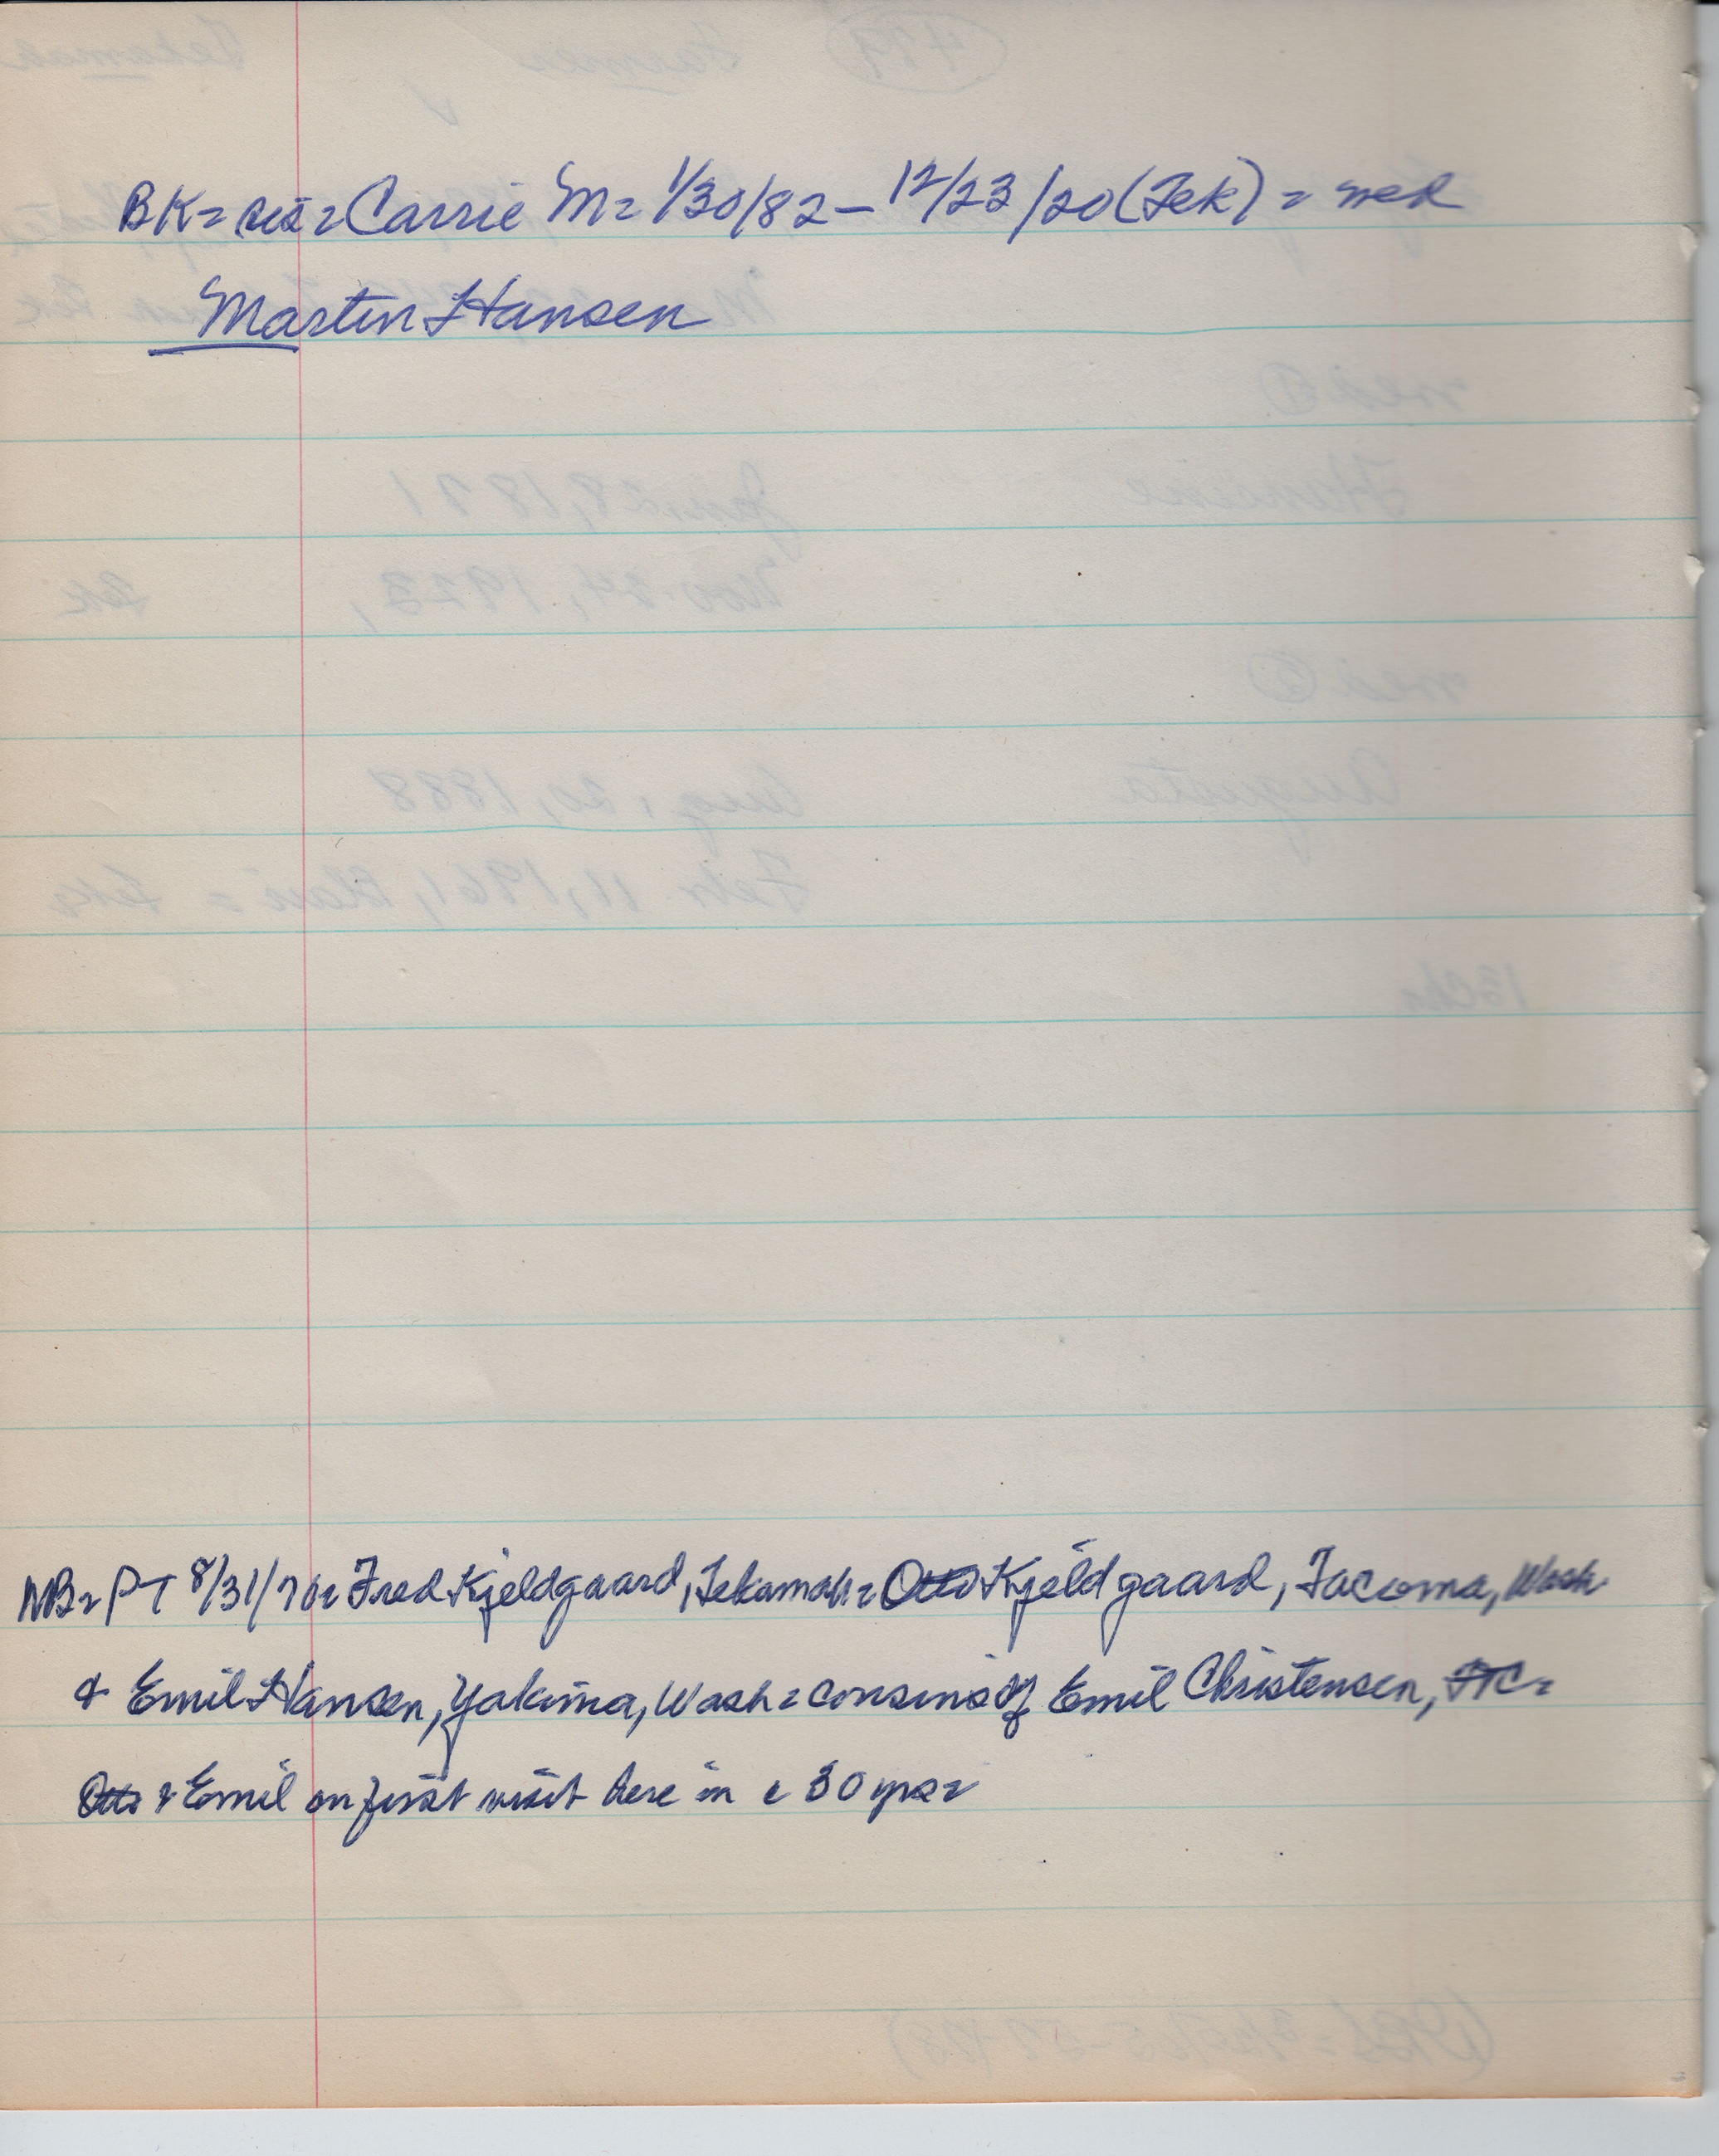 BK = sis = Carrie M = 1/30/82 - 12/23/20 (Tek) = med
Martin Hansen
NB = PT 8/31/76 = Fred Kjeldgaard, Tekamah = Otto Kjeldgaard, Tacoma, Wash
& Emil Hansen, Yakima, Wash = cousins of Emil Christensen, TC =
Otto & Emil on first visit here in c 30 yrs =